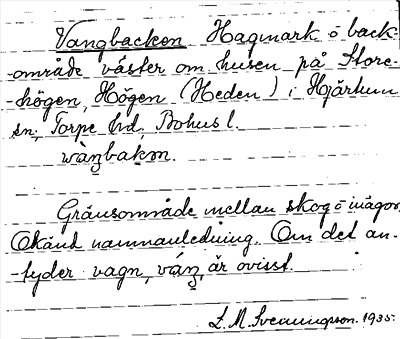 Vangbacken Hagmark o back-
-område väster om husen på Store-
-högen, Högen (Heden) i Hjärtum
sn, Torpe hd, Bohusl.
Gränsområde mellan skog o inägor.
Okänd namnanledning. Om det an-
-tyder vagn, väŋ, är ovisst.
L. M. Svenungson. 1935.